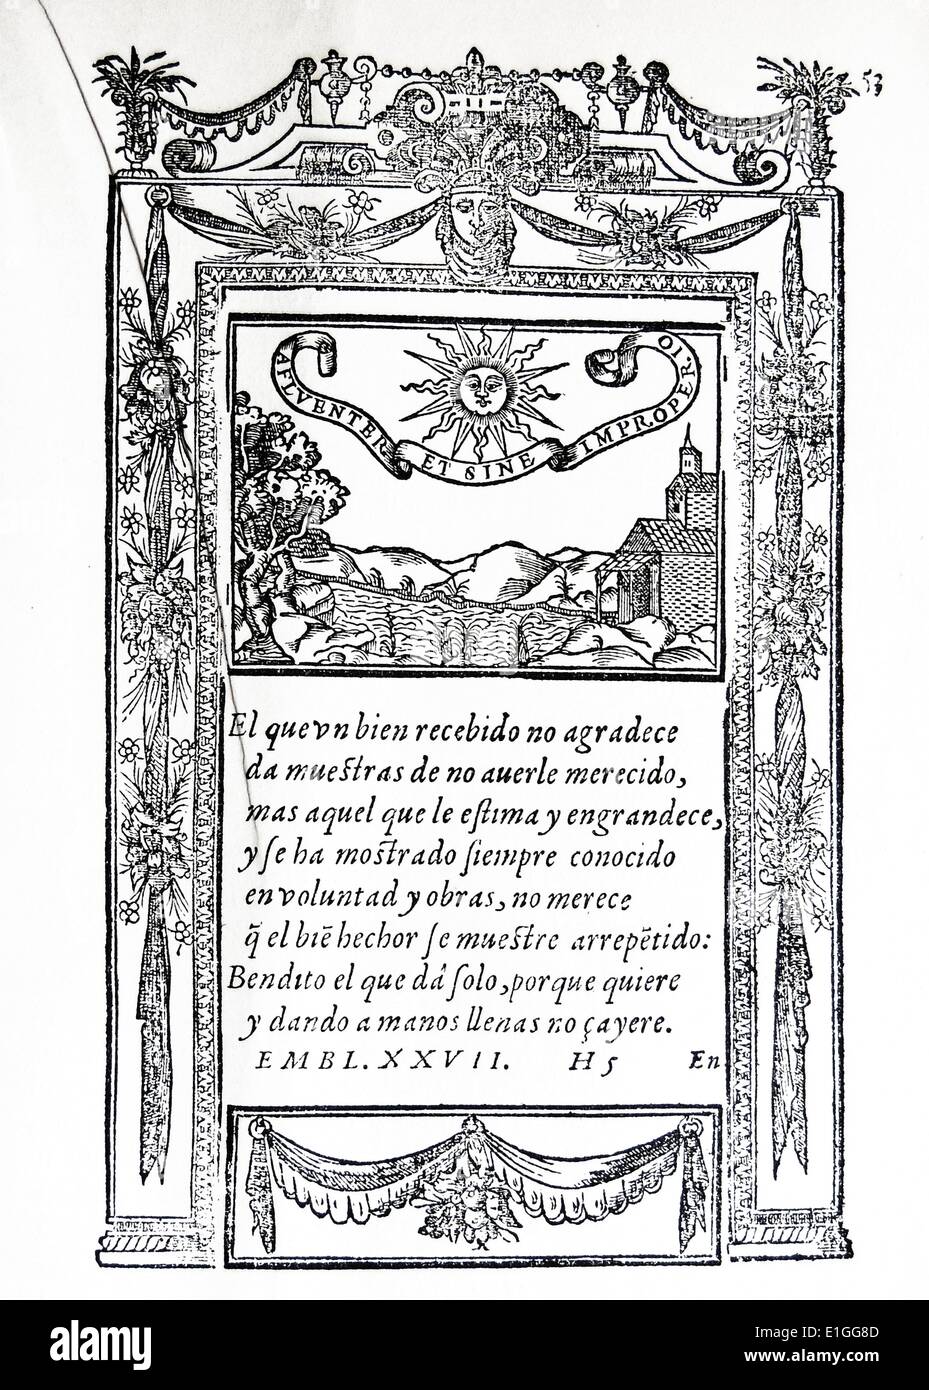 53
AFLVENTER ET SINE IMPROPERIO.
El que vn bien recebido no agradece
da muestras de no auerle merecido,
mas aquel que le eſtima y engrandece,
y ſe ha mostrado ſiempre conocido
en voluntad y obras, no merece
q̃ el biẽ hechor ſe muestre arrepẽtido:
Bendito el que dâ ſolo, porque quiere
y dando a manos llenas no çayere.
EMBL. XXVII. H 5 En
a
alamy
Image ID: E1GG8D
www.alamy.com